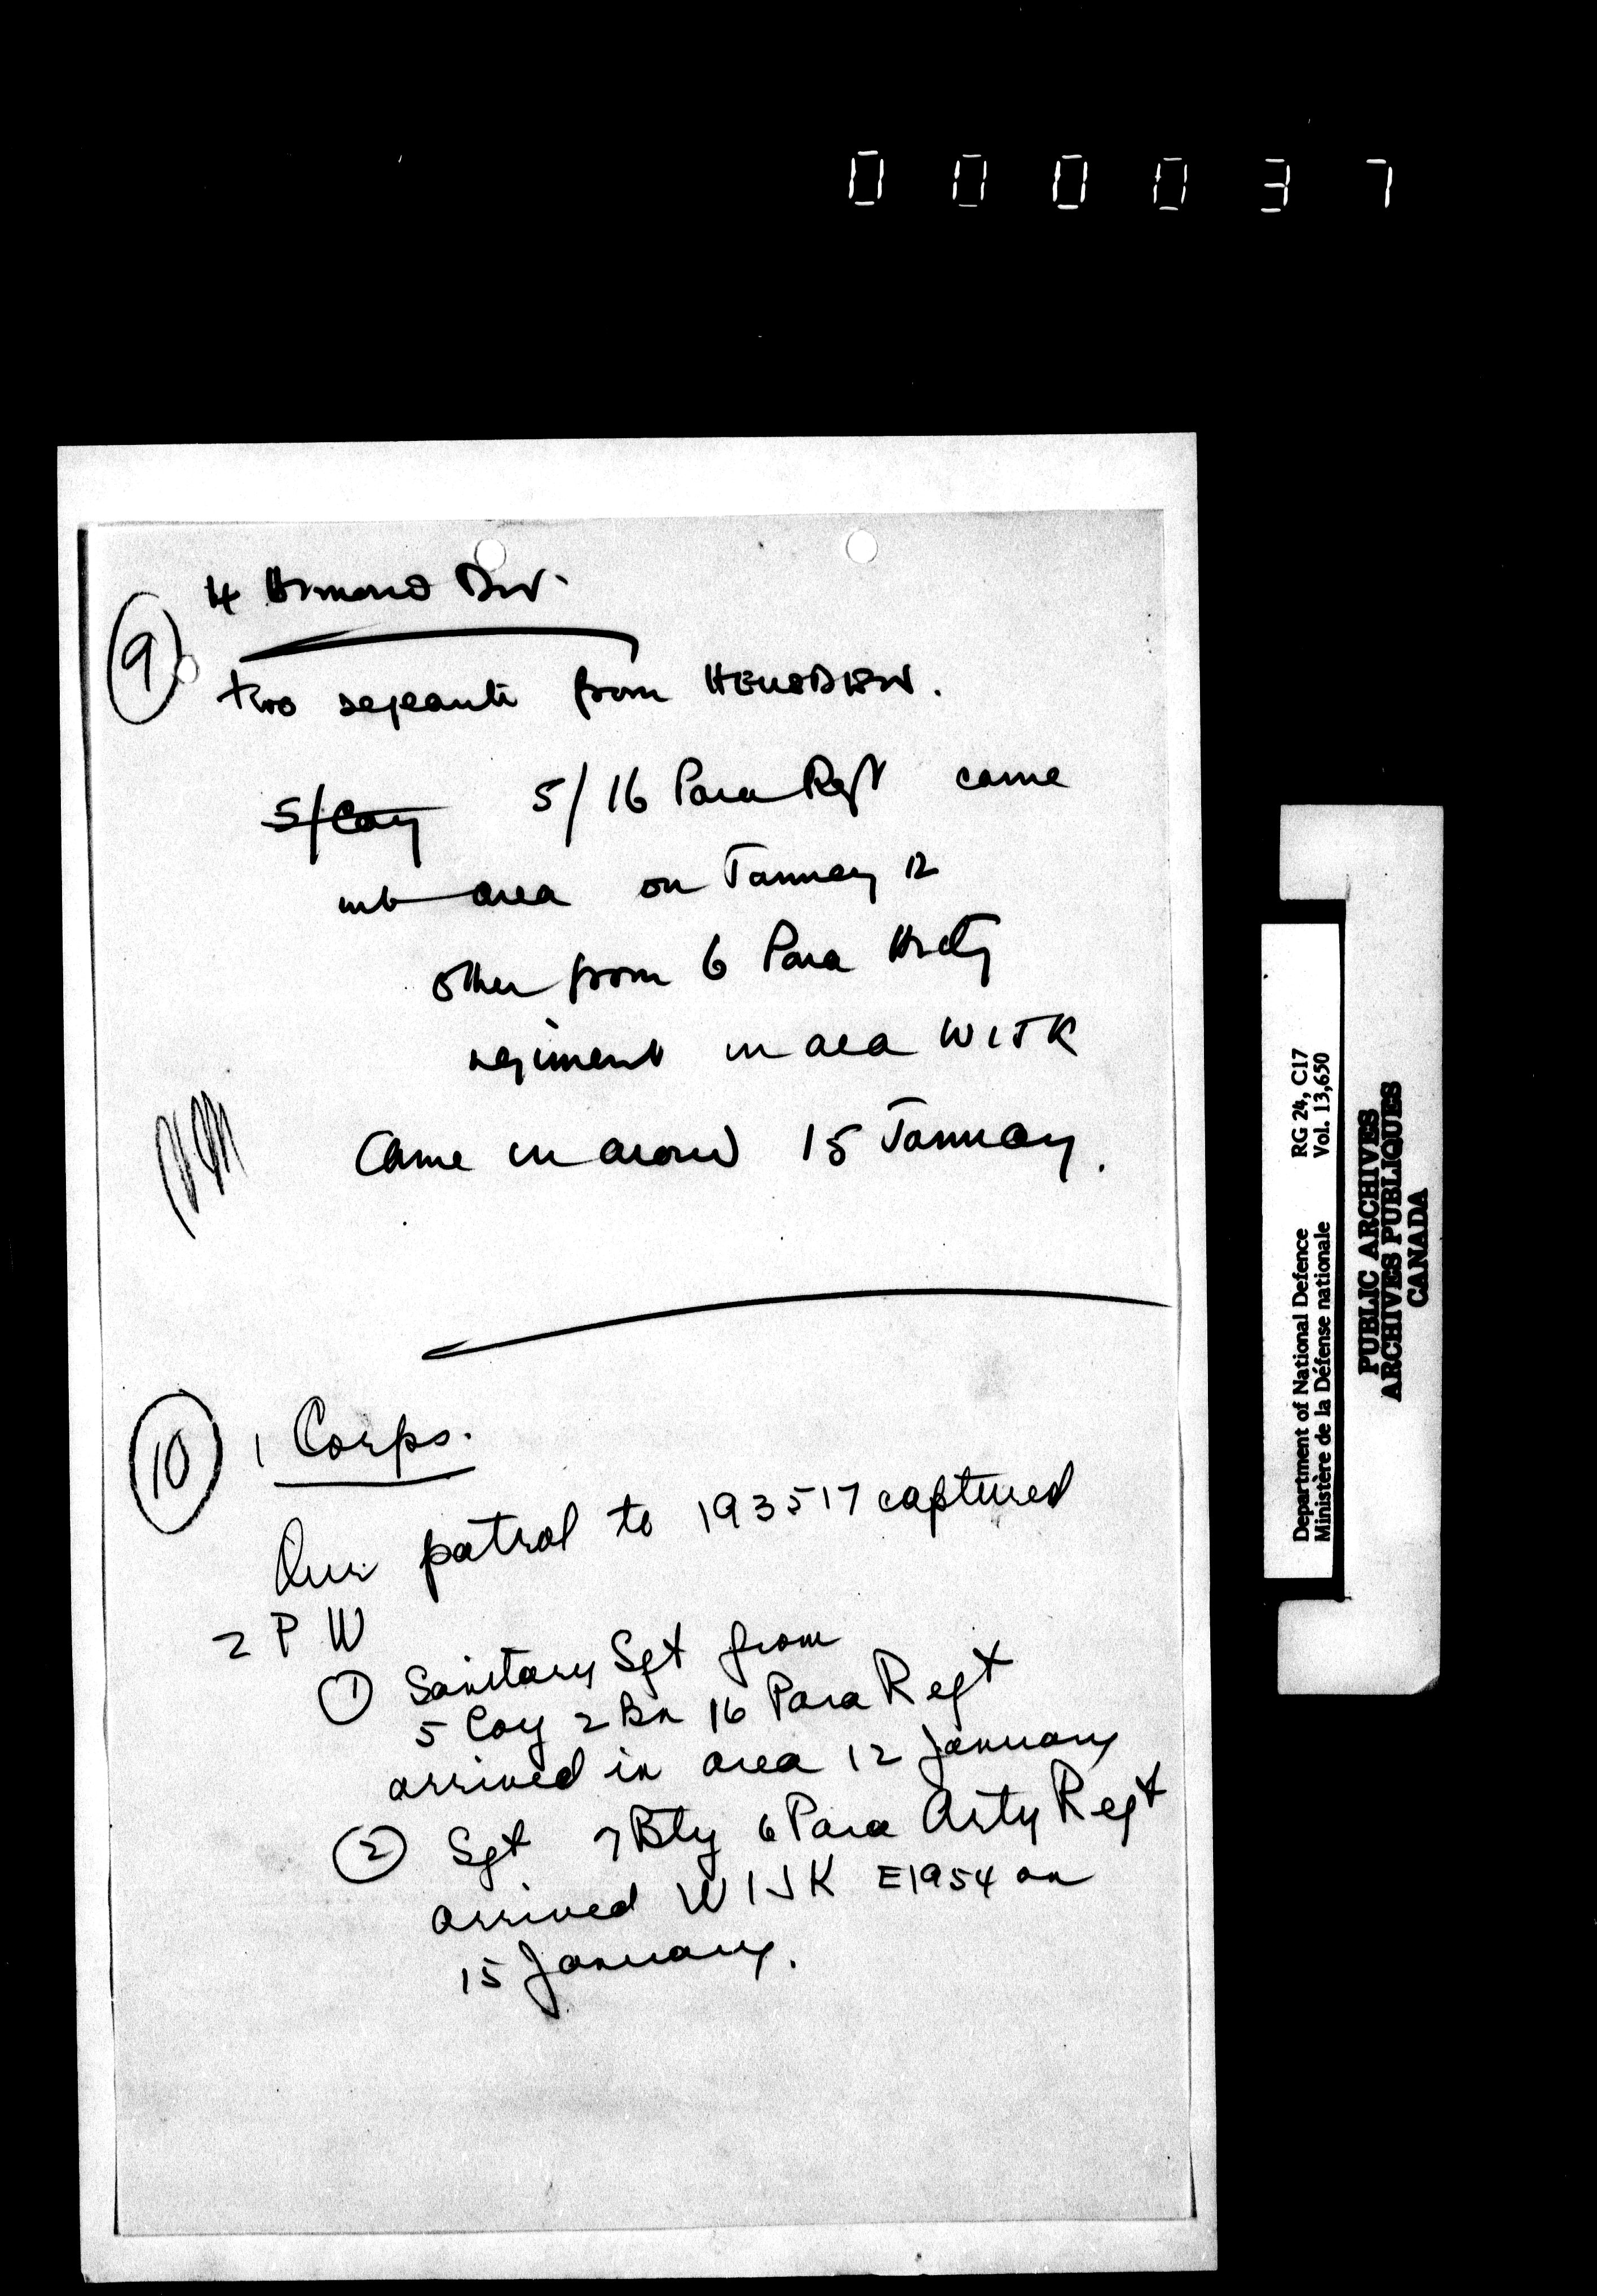 000037
4 Armored Div.
9
two sergeants from HEUSDEN.
5/Coy 5/16 Para Regt came
into area on January 12
other from 6 Para Arty
regiment in area WIJK
Came in around 15 January.
10 1 Corps.
Our patrol to 193517 captured
2 PW
① Sanitary Sgt from
5 Coy 2 Bn 16 Para Regt
arrived in area 12 January
② Sgt 7 Bty 6 Para Arty Regt
arrived WIJK E1954 on
15 January.
Department of National Defence RG 24, C17
Ministère de la Défense nationale Vol. 13,650
PUBLIC ARCHIVES
ARCHIVES PUBLIQUES
CANADA